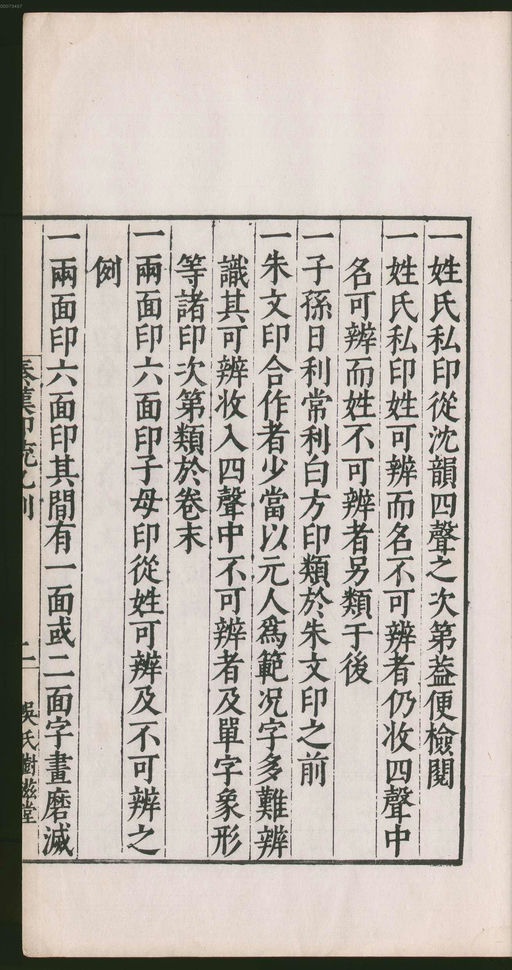 一姓氏私印從沈韻四聲之次第葢便檢閱
一姓氏私印姓可辨而名不可辨者仍收四聲中
名可辨而姓不可辨者另類于後
一子孫日利常利白方印類於朱文印之前
一朱文印合作者少當以元人爲範况字多難辨
識其可辨收入四聲中不可辨者及單字象形
等諸印次第類於卷末
一兩面印六面印子母印從姓可辨及不可辨之
例
一兩面印六面印其間有一面或二面字畫磨滅
秦漢印統凡例
二
吳氏樹滋堂
00073467